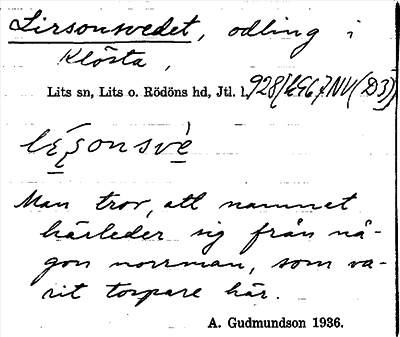 Lirsonsvedet, odling i
Klösta,
Lits sn, Lits o. Rödöns hd, Jtl. l.
Man tror, att namnet
härleder sig från nå-
gon norrman, som va-
rit torpare här.
A. Gudmundson 1936.